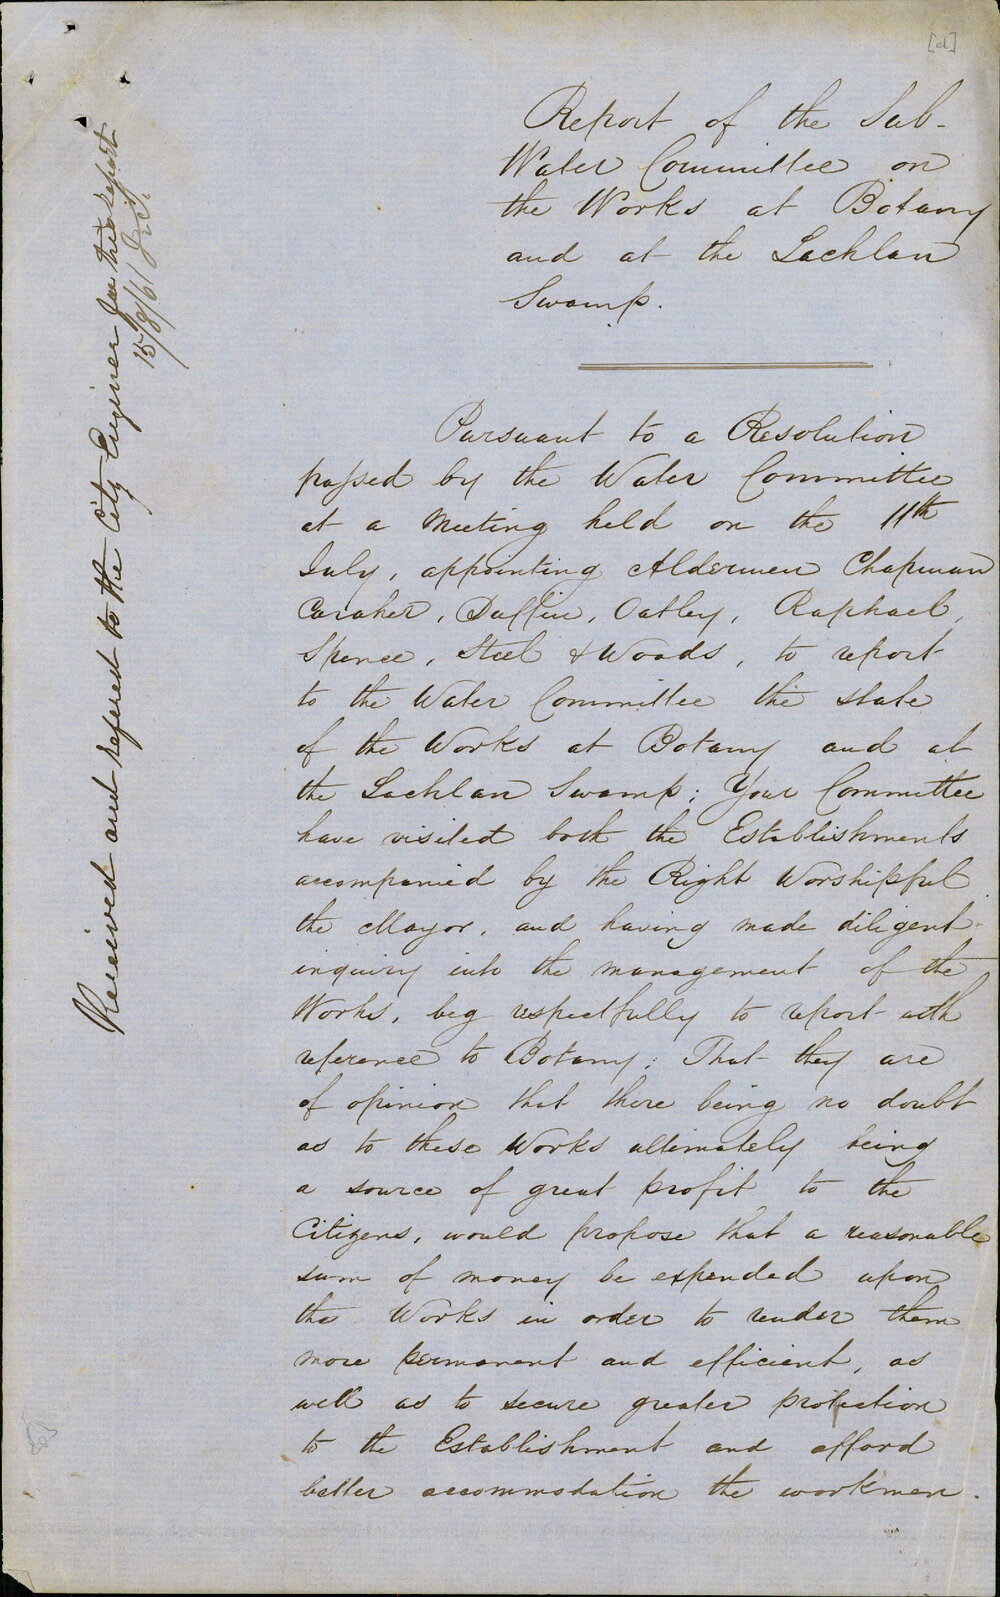 [d]
Report of the Sub-
Water Committee on
the Works at Botany
and at the Lachlan
Swamp.
Pursuant to a Resolution
paſsed by the Water Committee
at a Meeting held on the 11th
July, appointing Aldermen Chapman
Caraher, Duffin, Oatley, Raphael,
Spence, Steel & Woods, to report
to the Water Committee the state
of the Works at Botany and at
the Lachlan Swamp; Your Committee
have visited both the Establishments
accompanied by the Right Worshipful
the Mayor, and having made diligent
inquiry into the management of the
Works, beg respectfully to report with
reference to Botany; That they are
of opinion that there being no doubt
as to these Works ultimately being
a source of great profit to the
Citizens, would propose that a reasonable
sum of money be expended upon
the Works in order to render them
more permanent and efficient, as
well as to secure greater protection
to the Establishment and afford
better accommodation the workmen.
Received and refered to the City Engineer for this report
15/8/61